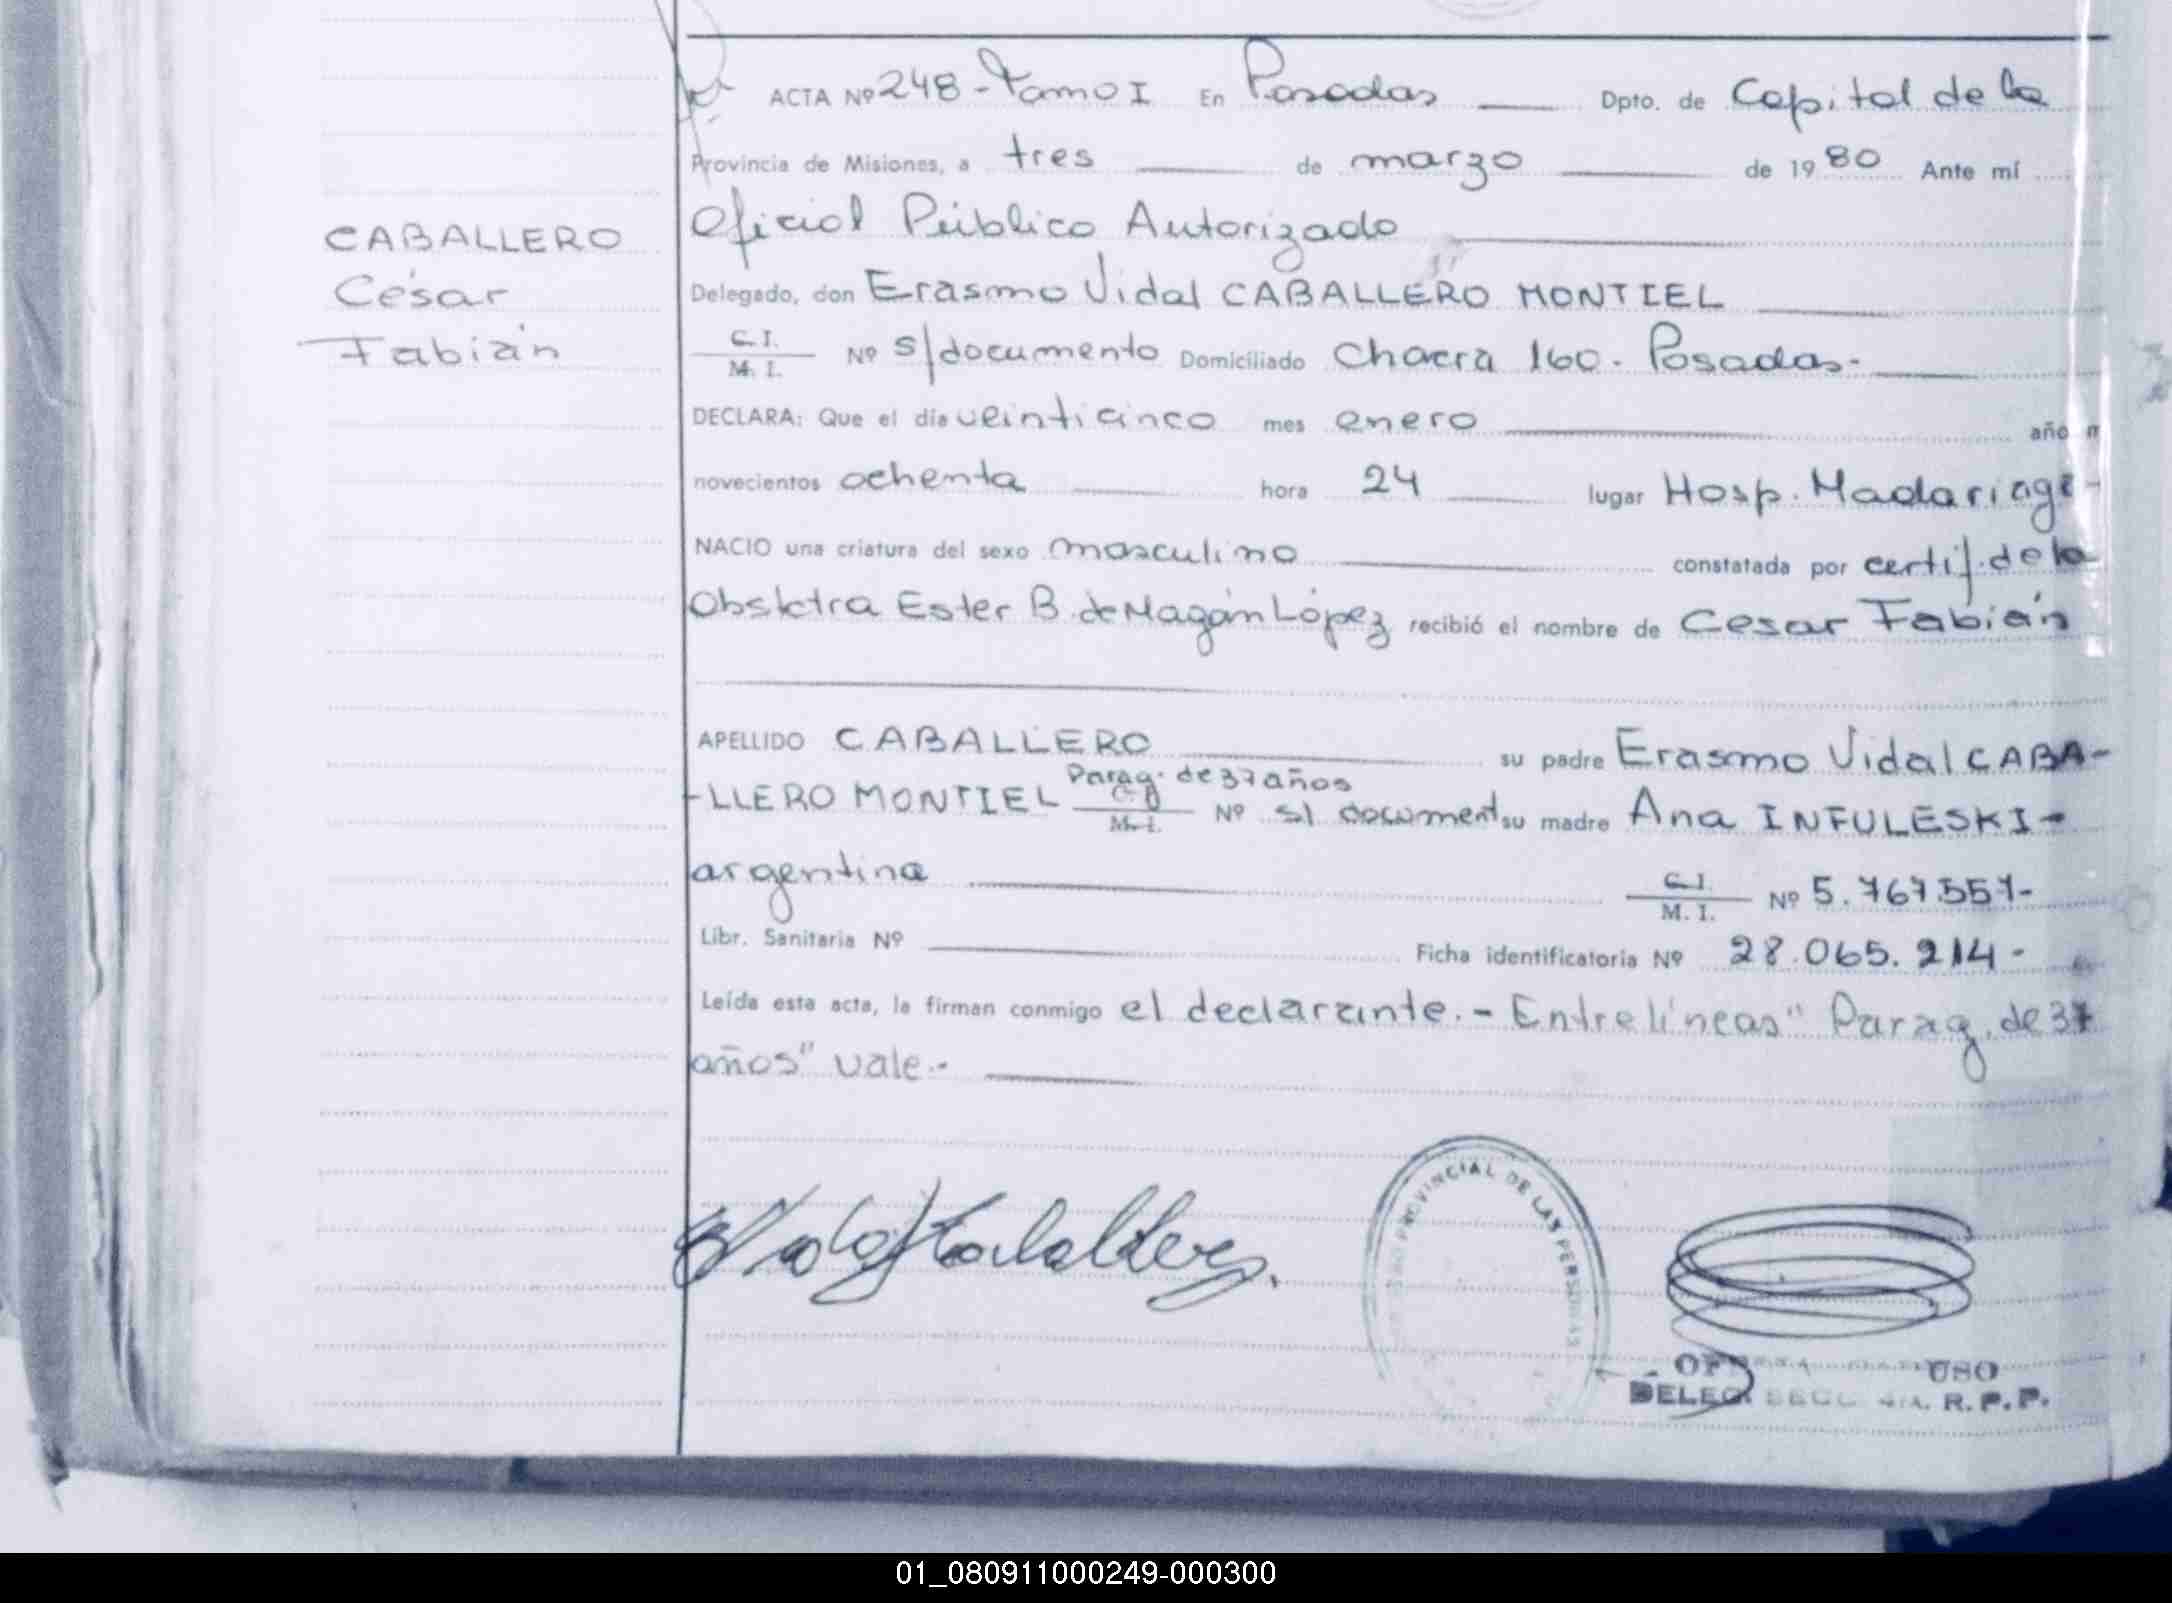 ACTA Nº 248 - Tomo I En Posadas Dpto. de Capital de la
Provincia de Misiones, a tres de marzo de 1980 Ante mí
Oficial Público Autorizado
CABALLERO
César
Fabián
Delegado, don Erasmo Vidal CABALLERO MONTIEL
C.I.
M.I. Nº s/documento Domiciliado Chacra 160. Posadas.-
DECLARA: Que el día veinticinco mes enero año m
novecientos ochenta hora 24 lugar Hosp. Madariaga-
NACIO una criatura del sexo masculino constatada por certif. de la
Obstetra Ester B. de Magán López recibió el nombre de Cesar Fabián
APELLIDO CABALLERO su padre Erasmo Vidal CABA-
Parag. de 37 años
-LLERO MONTIEL C.I. M.I. Nº s/ document su madre Ana INFULESKI-
argentina C.I. M.I. Nº 5.767.557-
Libr. Sanitaria Nº Ficha identificatoria Nº 28.065.214-
Leída esta acta, la firman conmigo el declarante.- Entre líneas "Parag. de 37
años" vale.-
PROVINCIAL DE LAS PERSONAS
DELEG. SECC. 4ta. R.P.P.
01_080911000249-000300